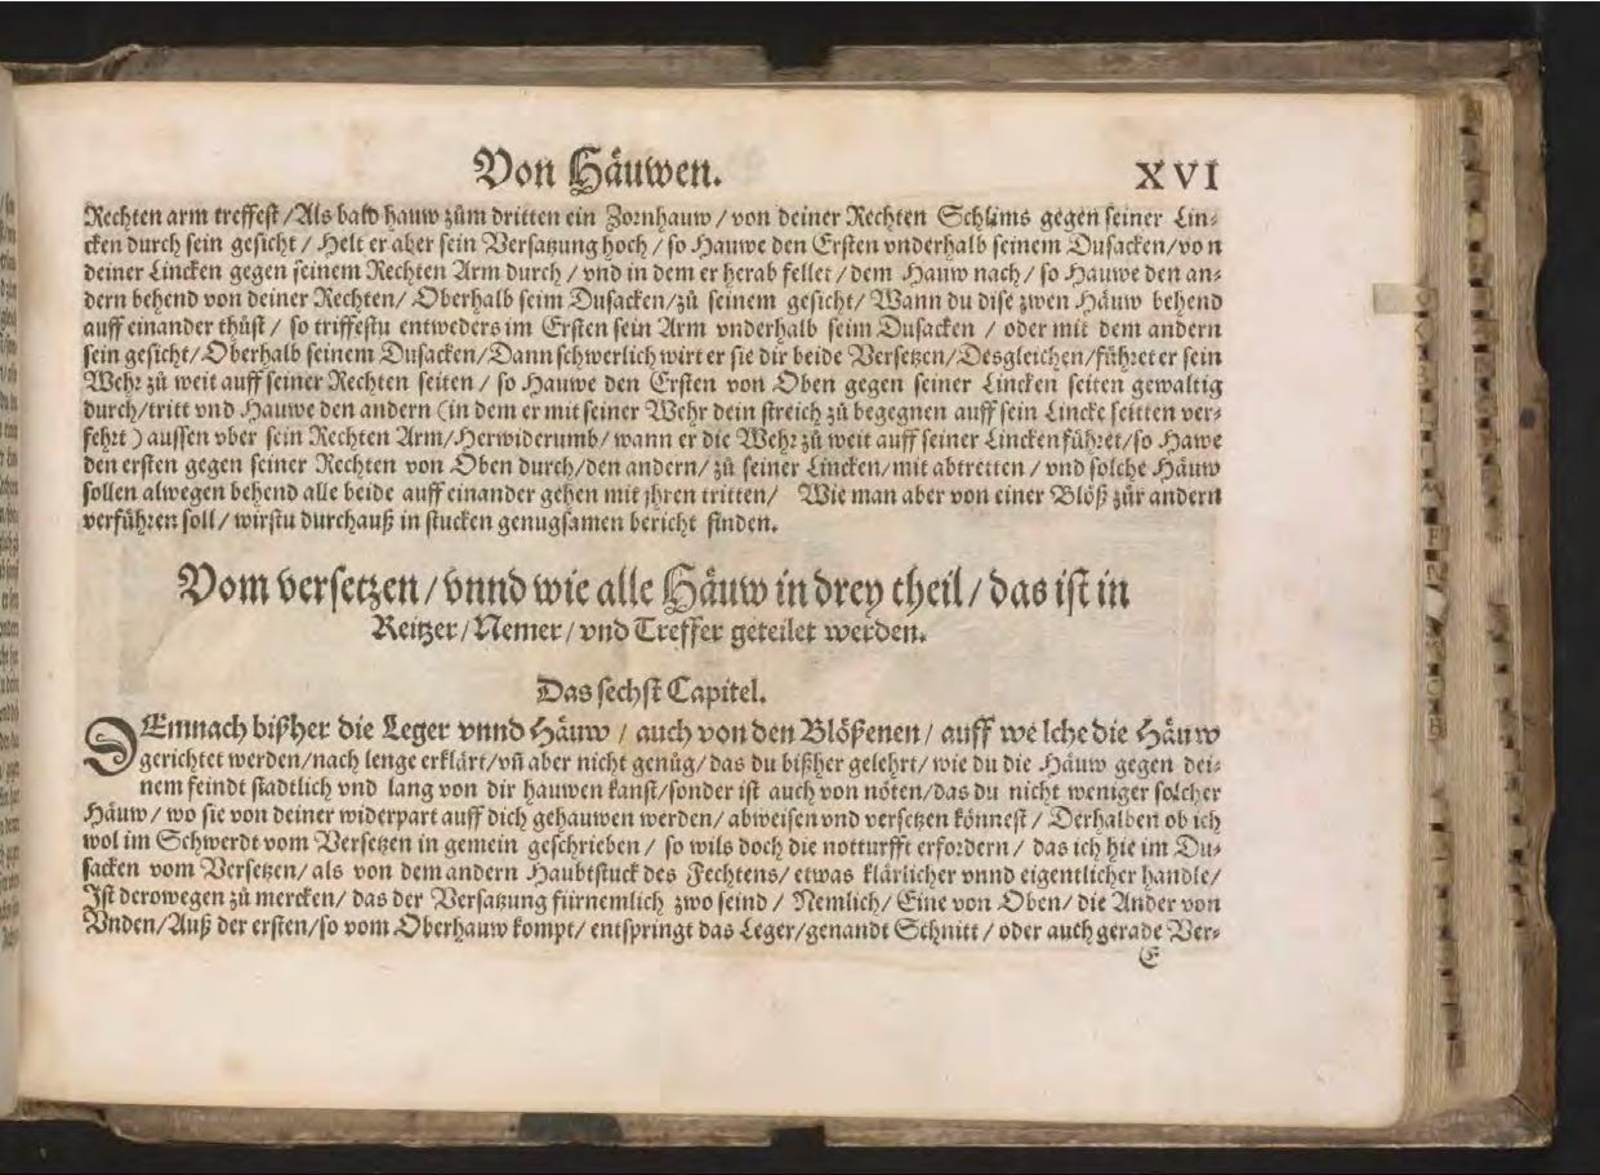 Von Häuwen.
XVI
Rechten arm treffest / Als bald hauw zům dritten ein Zornhauw / von deiner Rechten Schlims gegen seiner Lin⸗
cken durch sein gesicht / Helt er aber sein Versatzung hoch / so Hauwe den Ersten vnderhalb seinem Dusacken / von
deiner Lincken gegen seinem Rechten Arm durch / vnd in dem er herab fellet / dem Hauw nach / so Hauwe den an⸗
dern behend von deiner Rechten / Oberhalb seim Dusacken / zů seinem gesicht / Wann du dise zwen Häuw behend
auff einander thůst / so triffestu entweders im Ersten sein Arm vnderhalb seim Dusacken / oder mit dem andern
sein gesicht / Oberhalb seinem Dusacken / Dann schwerlich wirt er sie dir beide Versetzen / Desgleichen / führet er sein
Wehr zů weit auff seiner Rechten seiten / so Hauwe den Ersten von Oben gegen seiner Lincken seiten gewaltig
durch / tritt vnd Hauwe den andern (in dem er mit seiner Wehr dein streich zů begegnen auff sein Lincke seitten ver⸗
fehrt) aussen vber sein Rechten Arm / Herwiderumb / wann er die Wehr zů weit auff seiner Lincken führet / so Hawe
den ersten gegen seiner Rechten von Oben durch / den andern / zů seiner Lincken / mit abtretten / vnd solche Häuw
sollen alwegen behend alle beide auff einander gehen mit jhren tritten / Wie man aber von einer Blöß zůr andern
verführen soll / wirstu durchauß in stucken genugsamen bericht finden.
Vom versetzen / vnnd wie alle Häuw in drey theil / das ist in
Reitzer / Nemer / vnd Treffer geteilet werden.
Das sechst Capitel.
DEmnach bißher die Leger vnnd Häuw / auch von den Blößenen / auff welche die Häuw
gerichtet werden / nach lenge erklärt / vñ aber nicht genůg / das du bißher gelehrt / wie du die Häuw gegen dei⸗
nem feindt stadtlich vnd lang von dir hauwen kanst / sonder ist auch von nöten / das du nicht weniger solcher
Häuw / wo sie von deiner widerpart auff dich gehauwen werden / abweisen vnd versetzen könnest / Derhalben ob ich
wol im Schwerdt vom Versetzen in gemein geschrieben / so wils doch die notturfft erfordern / das ich hie im Du⸗
sacken vom Versetzen / als von dem andern Haubtstuck des Fechtens / etwas klärlicher vnnd eigentlicher handle /
Ist derowegen zů mercken / das der Versatzung fürnemlich zwo seind / Nemlich / Eine von Oben / die Ander von
Vnden / Auß der ersten / so vom Oberhauw kompt / entspringt das Leger / genandt Schnitt / oder auch gerade Ver⸗
E